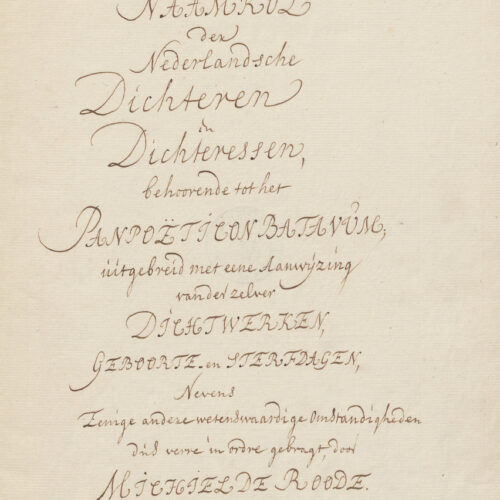 NAAMROL
der
Nederlandsche
Dichteren
en
Dichteressen,
behoorende tot het
PANPOËTICON BATAVÛM;
uitgebreid met eene Aanwyzing
van der zelver
DICHTWERKEN,
GEBOORTE- en STERFDAGEN,
Nevens
Eenige andere wetenswaardige Omstandigheden
dus verre in ordre gebragt, door
MICHIEL DE ROODE.